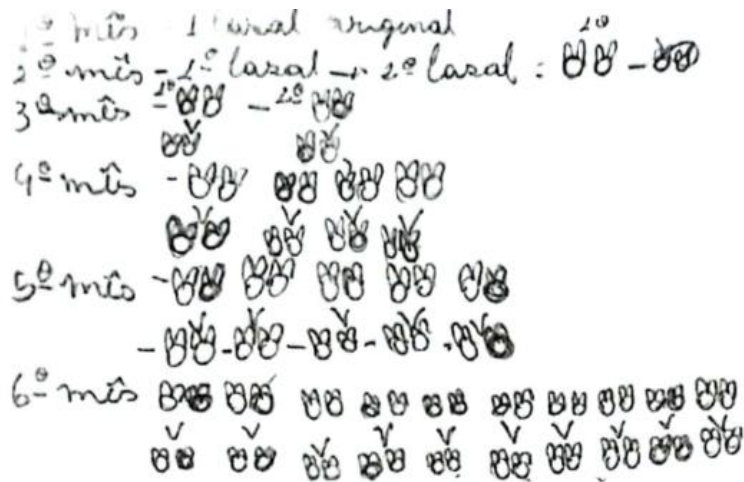 1º mês - 1 casal original
2º mês - 1º casal → 2º casal = 1º
3º mês - 1º - 2º
4º mês -
5º mês -
6º mês